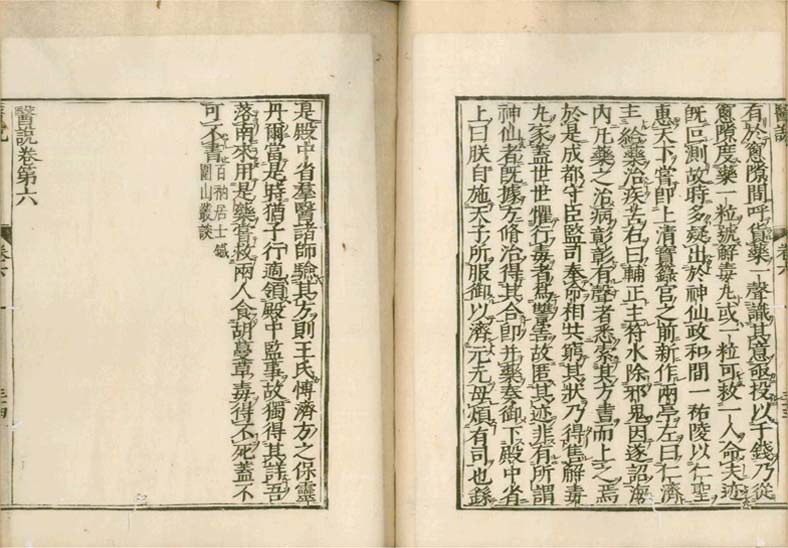 醫說
卷六
有於窻隙間呼貨藥一聲識其意亟投以千錢乃從
窻隙度藥一粒號解毒丸或一粒可救一人命夫迹
旣叵測故時多疑出於神仙政和間一祐陵以仁聖
惠天下嘗即上清寶籙官之前新作兩亭左曰仁濟
主給藥治疾苦右曰輔正主符水除邪鬼因遂詔海
內凡藥之治病彰彰有聲者悉索其方書而上之焉
於是成都守臣監司奉命相共窮其狀乃得售解毒
丸家蓋世世懼行毒者爲讐害故匿其迹非有所謂
神仙者旣據方脩治得其合即并藥奏御下殿中省
上曰朕自施天子所服御以濟元元毋煩有司也繇
是殿中省羣醫諸師驗其方則王氏愽濟方之保靈
丹爾當是時猶子行適領殿中監事故獨得其詳吾
落南來用是藥嘗救兩人食胡蔓草毒得不死蓋不
可不書 百衲居士鐵
圍山叢談
醫說卷第六
卷六